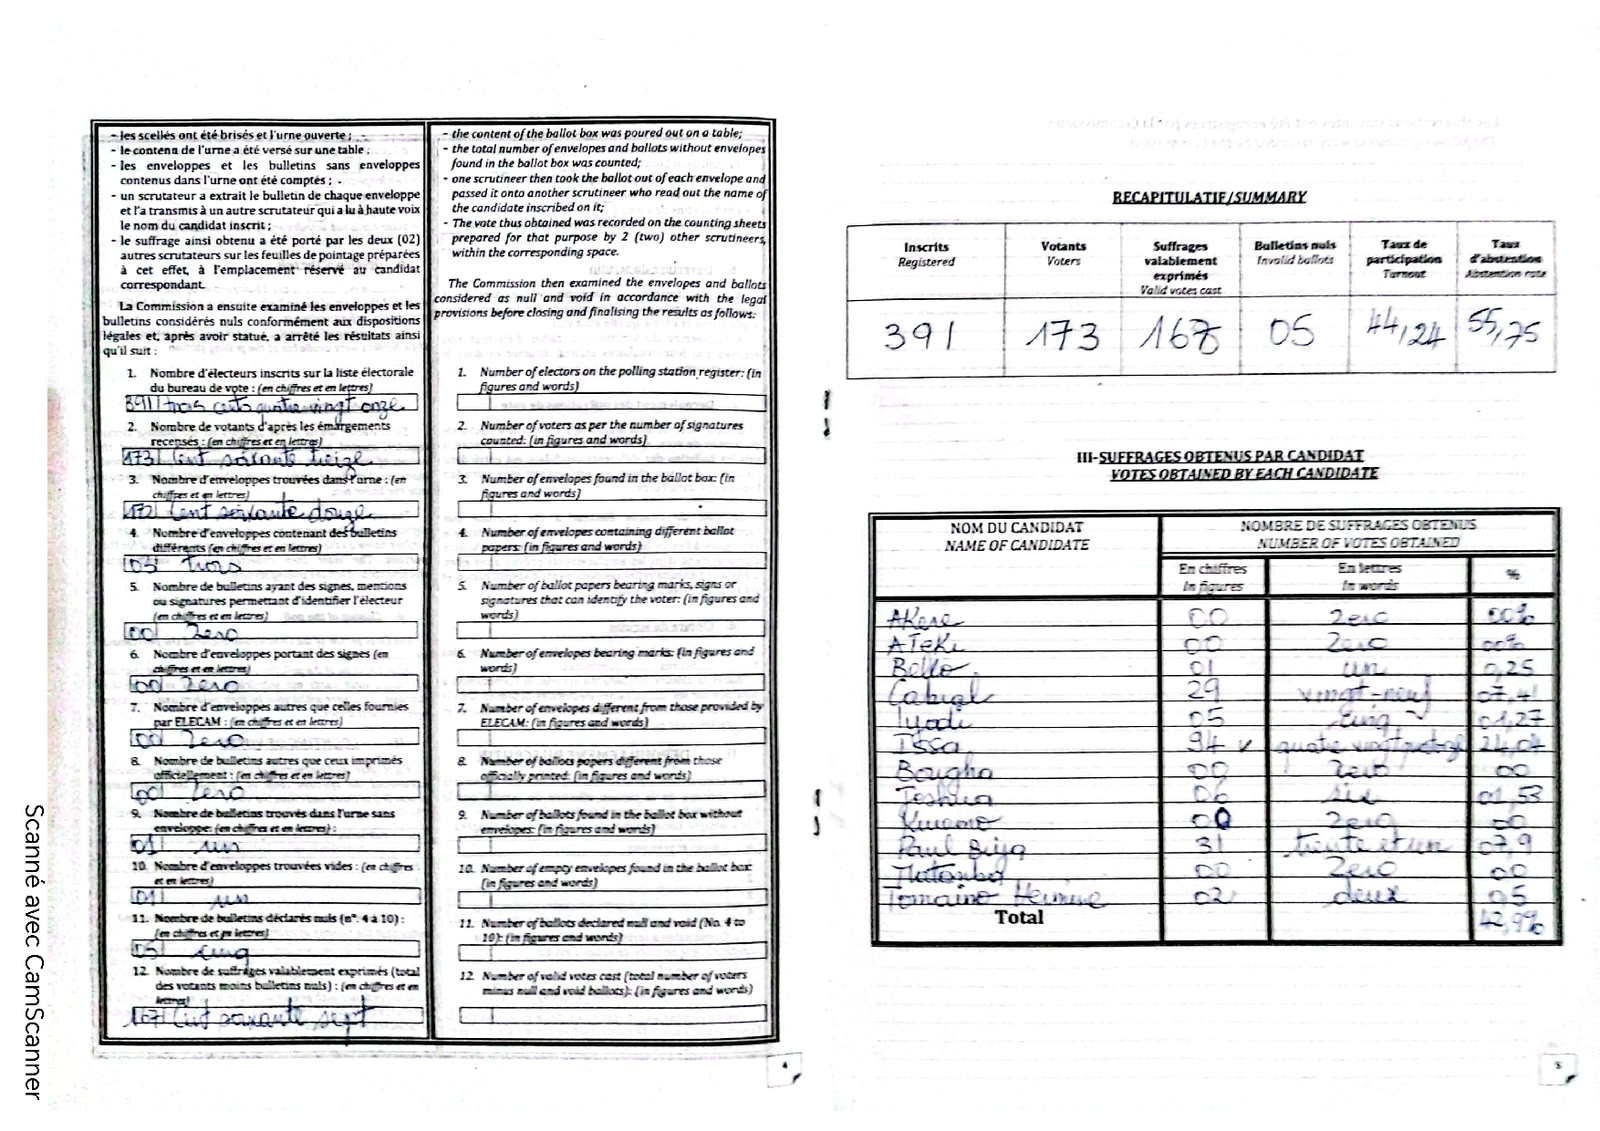 - les scellés ont été brisés et l'urne ouverte ;
- le contenu de l'urne a été versé sur une table ;
- les enveloppes et les bulletins sans enveloppes
contenus dans l'urne ont été comptés ; -
- un scrutateur a extrait le bulletin de chaque enveloppe
et l'a transmis à un autre scrutateur qui a lu à haute voix
le nom du candidat inscrit ;
- le suffrage ainsi obtenu a été porté par les deux (02)
autres scrutateurs sur les feuilles de pointage préparées
à cet effet, à l'emplacement réservé au candidat
correspondant.
La Commission a ensuite examiné les enveloppes et les
bulletins considérés nuls conformément aux dispositions
légales et, après avoir statué, a arrêté les résultats ainsi
qu'il suit :
1. Nombre d'électeurs inscrits sur la liste électorale
du bureau de vote : (en chiffres et en lettres)
391 trois cents quatre vingt onze
2. Nombre de votants d'après les émargements
recensés : (en chiffres et en lettres)
173 Cent soixante treize
3. Nombre d'enveloppes trouvées dans l'urne : (en
chiffres et en lettres)
172 Cent soixante douze
4. Nombre d'enveloppes contenant des bulletins
différents (en chiffres et en lettres)
03 trois
5. Nombre de bulletins ayant des signes, mentions
ou signatures permettant d'identifier l'électeur
(en chiffres et en lettres)
00 Zero
6. Nombre d'enveloppes portant des signes (en
chiffres et en lettres)
00 Zero
7. Nombre d'enveloppes autres que celles fournies
par ELECAM : (en chiffres et en lettres)
00 Zero
8. Nombre de bulletins autres que ceux imprimés
officiellement : (en chiffres et en lettres)
00 Zero
9. Nombre de bulletins trouvés dans l'urne sans
enveloppe: (en chiffres et en lettres) :
01 un
10. Nombre d'enveloppes trouvées vides : (en chiffres
et en lettres)
01 un
11. Nombre de bulletins déclarés nuls (n°. 4 à 10) :
(en chiffres et en lettres)
05 cinq
12. Nombre de suffrages valablement exprimés (total
des votants moins bulletins nuls) : (en chiffres et en
lettres)
167 Cent soixante sept
- the content of the ballot box was poured out on a table;
- the total number of envelopes and ballots without envelopes
found in the ballot box was counted;
- one scrutineer then took the ballot out of each envelope and
passed it onto another scrutineer who read out the name of
the candidate inscribed on it;
- The vote thus obtained was recorded on the counting sheets
prepared for that purpose by 2 (two) other scrutineers,
within the corresponding space.
The Commission then examined the envelopes and ballots
considered as null and void in accordance with the legal
provisions before closing and finalising the results as follows:
1. Number of electors on the polling station register: (in
figures and words)
2. Number of voters as per the number of signatures
counted: (in figures and words)
3. Number of envelopes found in the ballot box: (in
figures and words)
4. Number of envelopes containing different ballot
papers: (in figures and words)
5. Number of ballot papers bearing marks, signs or
signatures that can identify the voter: (in figures and
words)
6. Number of envelopes bearing marks: (in figures and
words)
7. Number of envelopes different from those provided by
ELECAM: (in figures and words)
8. Number of ballots papers different from those
officially printed: (in figures and words)
9. Number of ballots found in the ballot box without
envelopes: (in figures and words)
10. Number of empty envelopes found in the ballot box:
(in figures and words)
11. Number of ballots declared null and void (No. 4 to
10): (in figures and words)
12. Number of valid votes cast (total number of voters
minus null and void ballots): (in figures and words)
4
RECAPITULATIF/SUMMARY
Inscrits Registered
Votants Voters
Suffrages valablement exprimés Valid votes cast
Bulletins nuls Invalid ballots
Taux de participation Turnout
Taux d'abstention Abstention rate
391 173 168 05 44,24 55,75
III-SUFFRAGES OBTENUS PAR CANDIDAT
VOTES OBTAINED BY EACH CANDIDATE
NOM DU CANDIDAT NOMBRE DE SUFFRAGES OBTENUS
NAME OF CANDIDATE NUMBER OF VOTES OBTAINED
En chiffres En lettres %
In figures In words
Akere 00 Zero 00%
ATEKI 00 Zero 00%
Bello 01 un 0,25
Cabral 29 vingt-neuf 07,41
Iyodi 05 cinq 01,27
Issa 94 quatre vingt quatorze 24,04
Bougha 00 Zero 00
Joshua 06 six 01,53
Kwemo 00 Zero 00
Paul Biya 31 trente et un 07,9
Matomba 00 Zero 00
Tomaino Hermine 02 deux 0,5
Total 42,9%
5
Scanné avec CamScanner